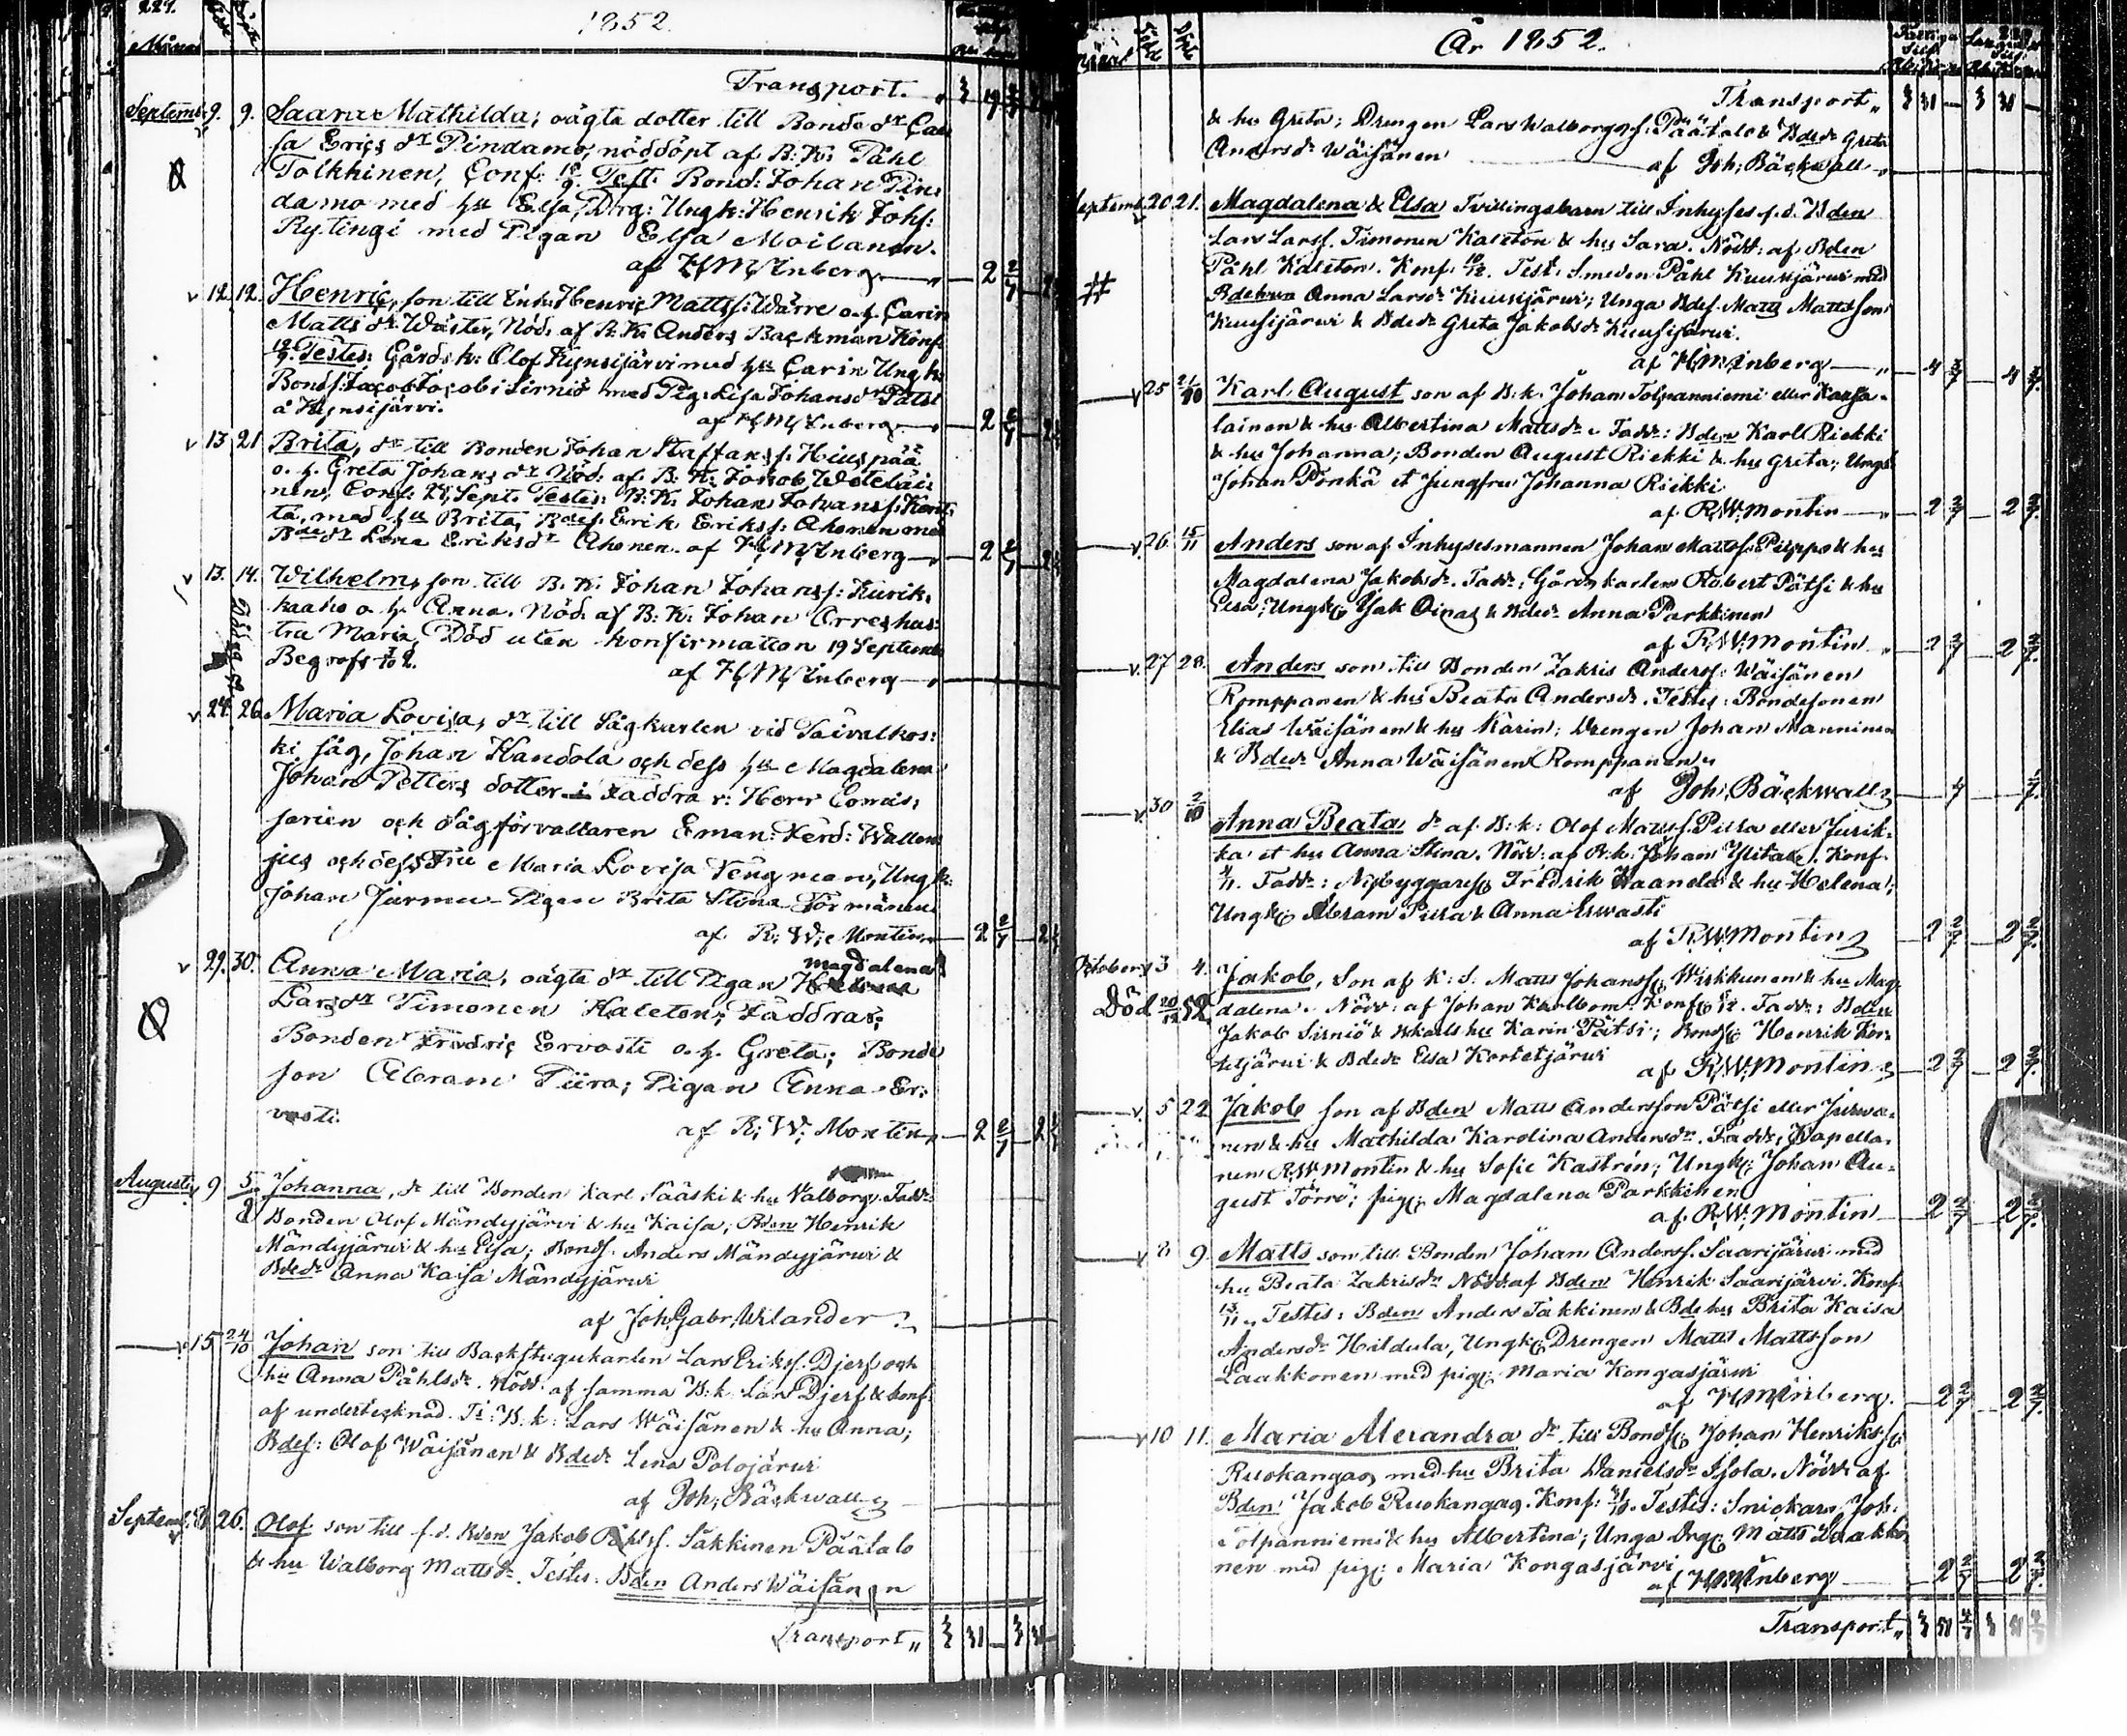 227.
1852.
Månad
Transport.
Septemb. 9. 9. Saara Mathilda; oägta dotter till Bonde dr Cai
sa Erics dr Pindamo, nöddöpt af B: K: Påhl
Tolkkinen, Conf: 19/9. Test: Bond: Johan Pin
damo med hu Elsa; Drg: Ungk: Henrik Johs:
Rytingi med Pigan Elsa Moilanen.
af H M Enberg
12. 12. Henric, son till Inh: Henric Mattss: Wärre o. h. Carin
Matts dr Wäster, Nöd: af B. K: Anders Backman Konf
Testes: Gårds k: Olof Kynsijärvi med hu Carin Ungk:
Bonds: Jacob Jacobi Sirniö med Pig: Lisa Johansdr Pätsi
å Kynsijärvi.
af H M Enberg
13 21 Brita, dr till Bonden Johan Staffans s. Hiuspää
o. h. Greta Johans dr Nöd: af B. K: Jakob
nen, Conf: 24 Sept. Testes: B: K: Johan Johanss:
ta, med hu Brita, Bdes: Erik Erikss: Ahonen med
Bdedr Lena Eriksdr Ahonen. af H M Enberg
13. 14. Wilhelm, son till B. K. Johan Johanss: Kurik
kaaho o. h. Anna. Nöd: af B: K: Johan Arres hus
tru Maria, Död utan konfirmation 19 Septemb
Begrofs
af H M Enberg
24. 26. Maria Lovisa, dr till Sågkarlen vid Taivalkos:
ki såg, Johan Handola och dess hu Magdalena
Johan Petters dotter Faddrar: Herr Comis:
sarien och Sågförvaltaren Eman: Ferd: Wallen
jus och dess Fru Maria Lovisa Tengman, Ungk:
Johan Jurmu Pigan Brita Stina Törmänen
af R: W: Montin
29. 30. Anna Maria, oägta dr till Pigan Magdalena
Larsdr Timonen Kaleton; Faddrar;
Bonden Fredric Ervasti o. h. Greta; Bonde
son Abram Piira; Pigan Anna Er:
vasti.
af R: W: Montin
Augusti 9 5/9 Johanna, dr till Bonden Karl Sääski & hu Valborg. Fadd:
Bonden Olof Mändyjärvi & hu Kaisa; Bden Henrik
Mändyjärvi & hu Elsa; Bonds. Anders Mändyjärvi &
Bdedr Anna Kaisa Mändyjärvi
af Joh. Gabr. Wilander
15 24/10 Johan son till Backstugukarlen Lars Erikss. Djerf och
hu Anna Påhlsdr. Nödd. af samma B. k. Lars Djerf & konf.
af undertecknad. T: B. k: Lars Wäisänen & hu Anna;
Bdes: Olof Wäisänen & Bdedr Lena Polojärvi
af Joh. Bäckwall
Septemb. 26. Olof son till f. d. Bden Jakob Påhls s. Säkkinen Päätalo
& hu Walborg Mattsdr. Testes: Bden Anders Wäisänen
Transport
År 1852.
Transport
& hu Greta; Drengen Lars Walborgss. Päätalo & Bdedr Greta
Andersdr Wäisänen
af Joh. Bäckwall
Septemb. 20 21. Magdalena & Elsa Tvillingsbarn till Inhyses f. d. Bden
Lars Larss. Timonen Kaleton & hu Sara. Nödd: af Bden
Påhl Kaleton. Konf: 10/12. Test: Smeden Påhl Kuusijärvi med
Bdehun Anna Larsdr Kuusijärvi; Unga Bdes. Matts Mattsson
Kuusijärvi & Bdedr Greta Jakobsdr Kuusijärvi.
af H M Enberg
25 21/10 Karl August son af B. k. Johan Tolpanniemi eller Karja-
lainen & hu Albertina Mattsdr. Fadd: Bden Karl Riekki
& hu Johanna; Bonden August Riekki & hu Greta; Ungk.
Johan Pönkä et Jungfru Johanna Riekki
af R. W. Montin
26 15/11 Anders son af Inhysesmannen Johan Mattss. Piippo & hu
Magdalena Jakobsdr. Fadd: Gårdskarlen Robert Pätsi & hu
Elsa; Ungk. Isak Oinas & Bdedr Anna Parkkinen
af R. W. Montin
27 28. Anders son till Bonden Zakris Anderss. Wäisänen
Romppanen & hu Beata Andersdr. Testes: Bondesonen
Elias Wäisänen & hu Karin; Drengen Johan Manninen
& Bdedr Anna Wäisänen Romppanen
af Joh. Bäckwall
30 2/10 Anna Beata dr af B: k: Olof Mattss. Piira eller Jurik-
ka et hu Anna Stina. Nöd: af B. k. Johan Ylitalo. Konf.
Fadd: Nybyggares. Fredrik Kaanela & hu Helena;
Ungk. Abram Piira & Anna Erwasti
af R. W. Montin
Oktober 3 4. Jakob, Son af K: S. Matts Johanss. Wirkkunen & hu Mag-
Död 20/12 52 dalena. Nödd: af Johan Karlbom. Konf. Fadd: Bden
Jakob Sirniö & hu Karin Pätsi; Bonds. Henrik Kor-
tetjärvi & Bdedr Elsa Kortetjärvi
af R. W. Montin
5 22 Jakob son af Bden Matts Andersson Pätsi eller Jurva-
nen & hu Mathilda Karolina Andersdr. Fadd: Kapella-
nen R. W. Montin & hu Sofie Kastrén; Ungk. Johan Au-
gust Törrö; pig. Magdalena Parkkinen
af R. W. Montin
8 9. Matts son till Bonden Johan Anderss. Saarijärvi med
hu Beata Zakrisdr Nödd: af Bden Henrik Saarijärvi. Konf.
13/11. Testes: Bden Anders Takkinen & Bdehu Brita Kaisa
Andersdr Heildula, Ungk. Drengen Matts Mattsson
Laakkonen med pig. Maria Kongasjärvi
af H M Enberg.
10 11. Maria Alexandra dr till Bonds. Johan Henrikss.
Ruokangas med hu Brita Danielsdr Isola. Nödd af
Bden Jakob Ruokangas. Konf: Testes: Snickarn Joh.
Tolpanniemi & hu Albertina; Unga Drg. Matts Laakko-
nen med pig. Maria Kongasjärvi
af H M Enberg
Transport